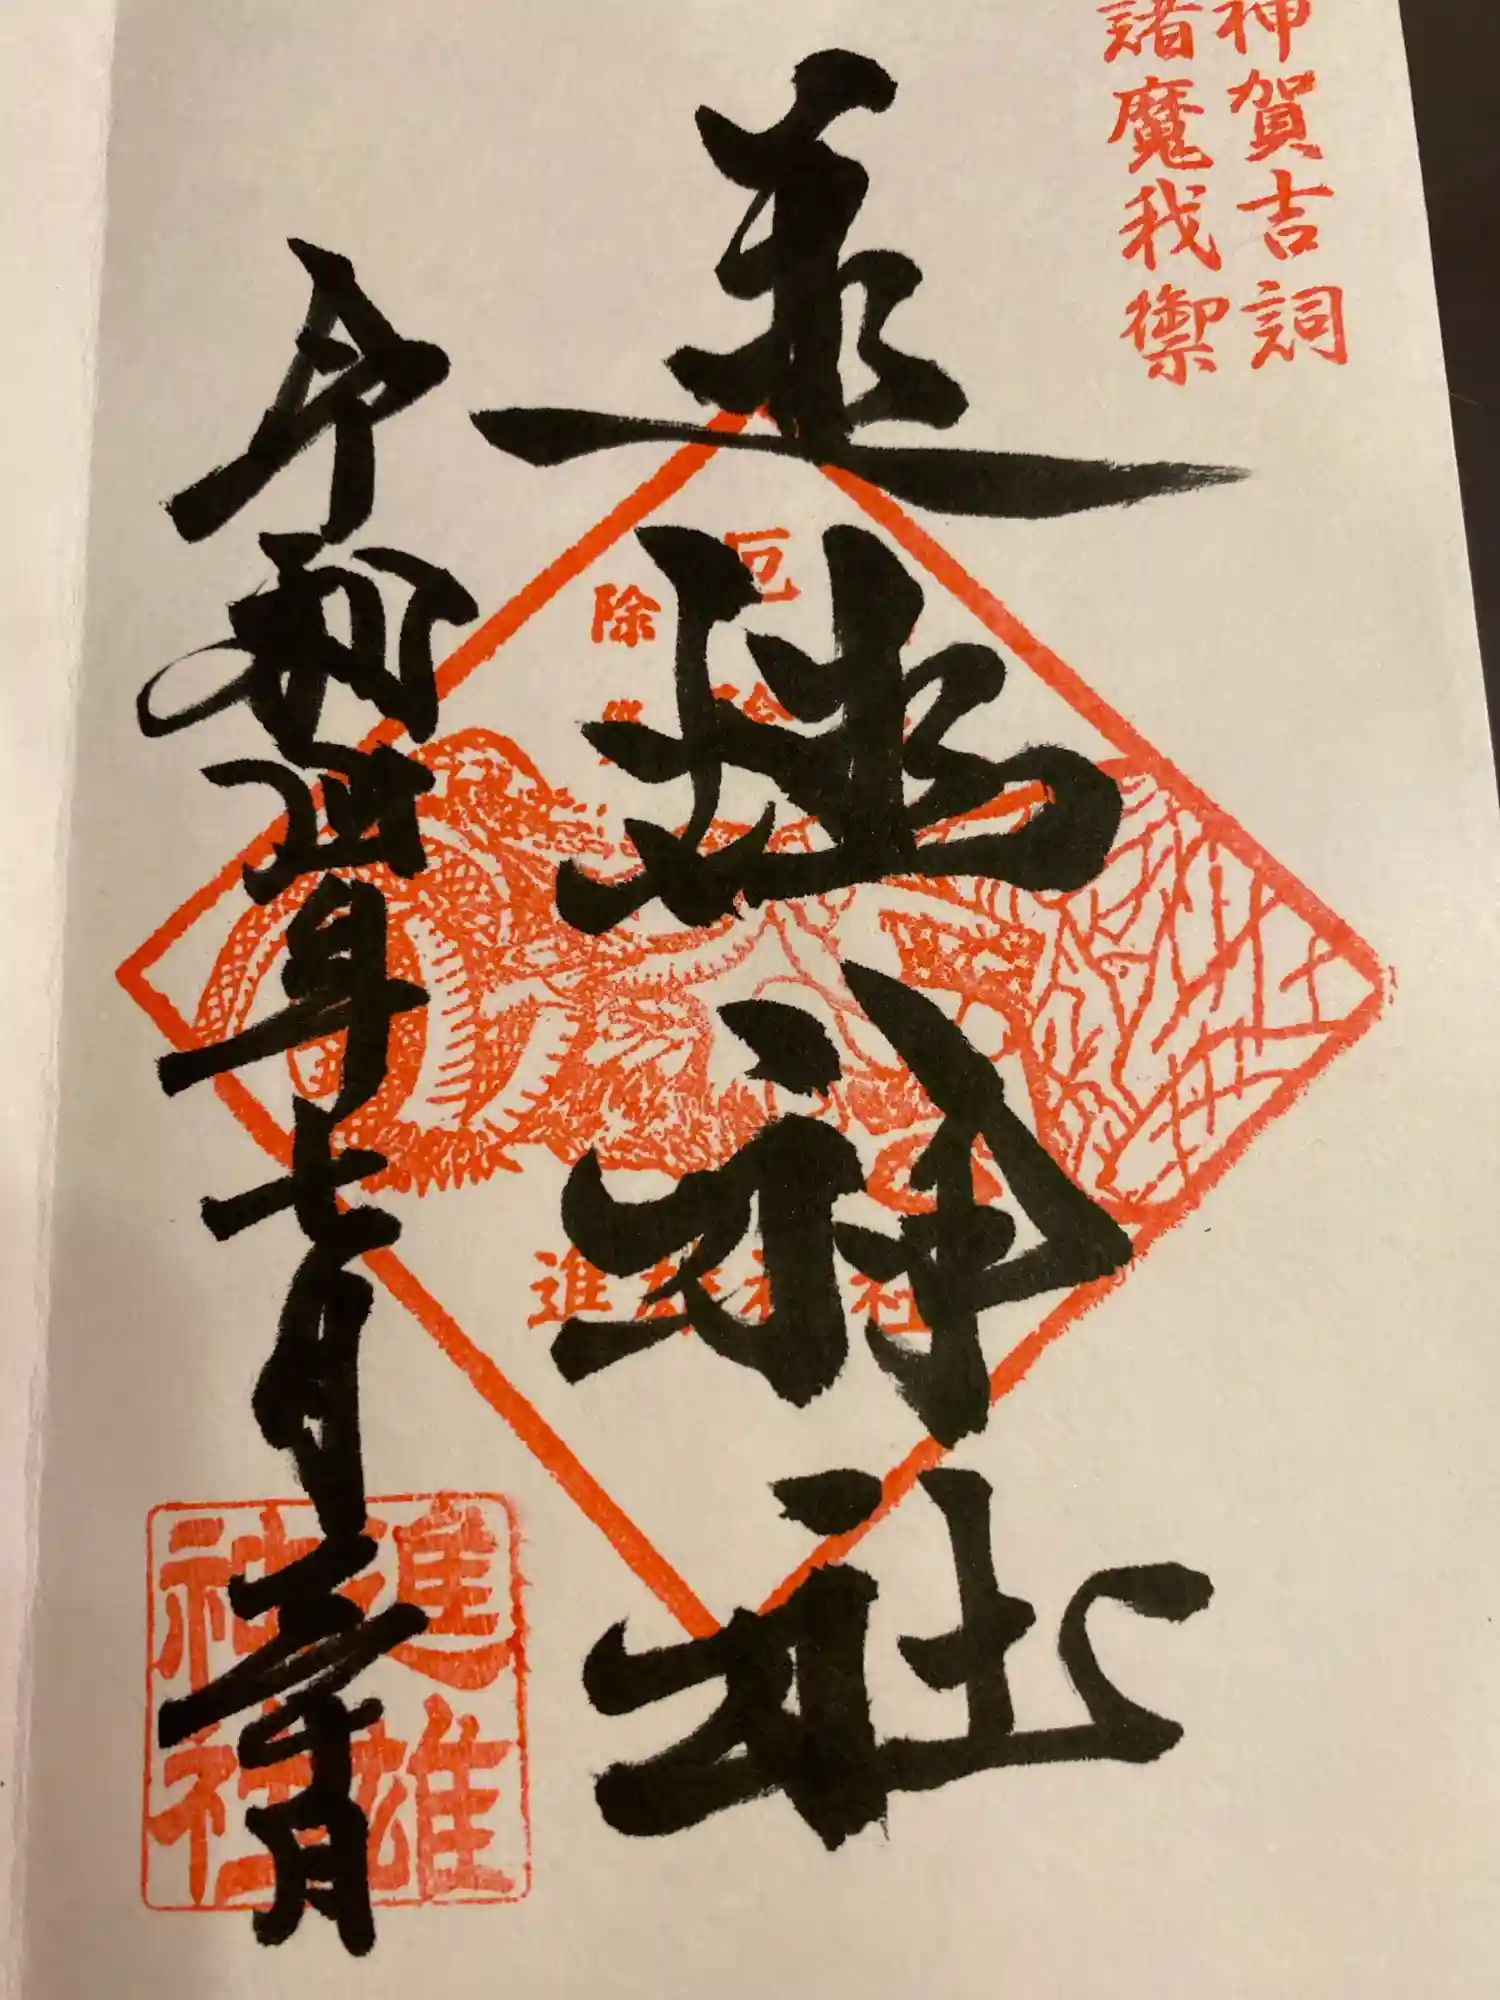 神賀吉詞
諸魔我禦
進雄神社
令和四年七月
厄
除
進雄神社
進雄
神社